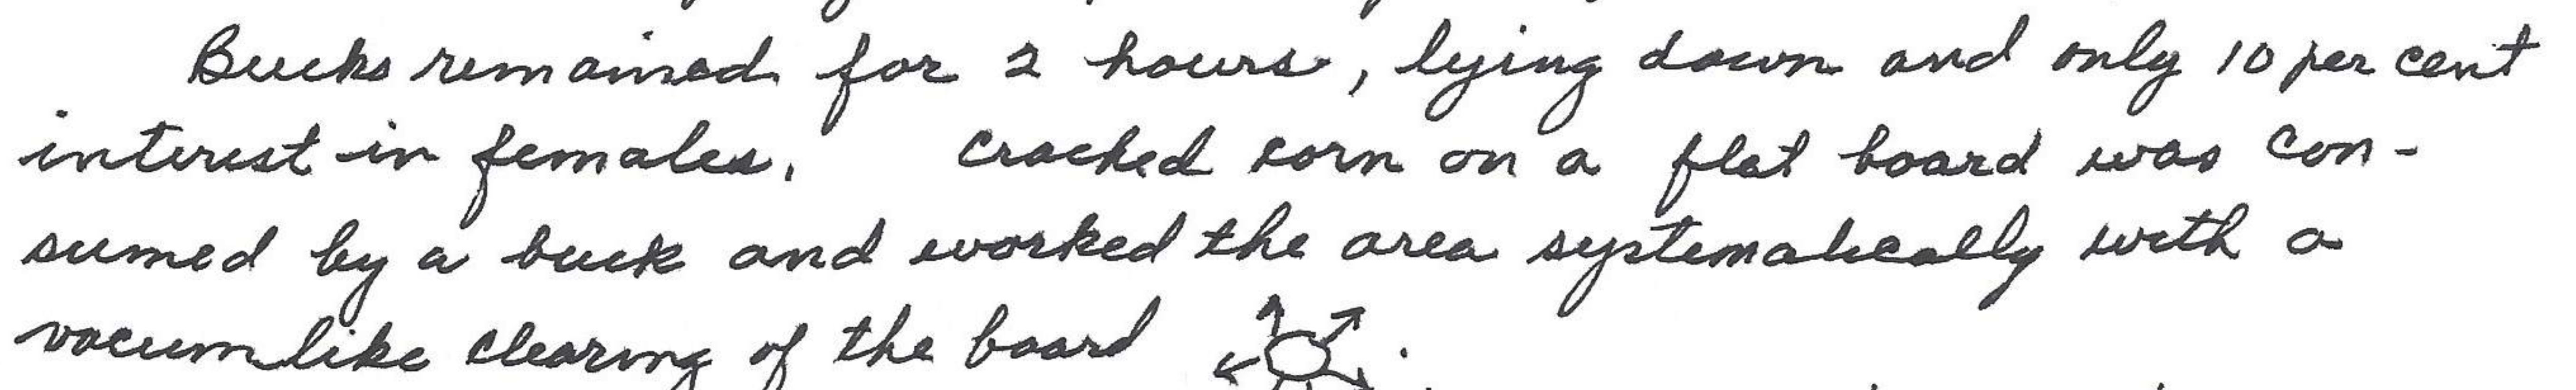 Bucks remained for 2 hours, lying down and only 10 per cent
interest in females. Cracked corn on a flat board was con-
sumed by a buck and worked the area systematically with a
vacumlike clearing of the board .